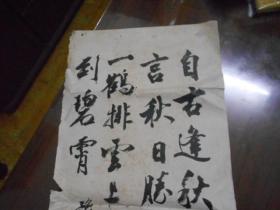 自古逢秋
言秋日勝
一鶴排雲上
到碧霄